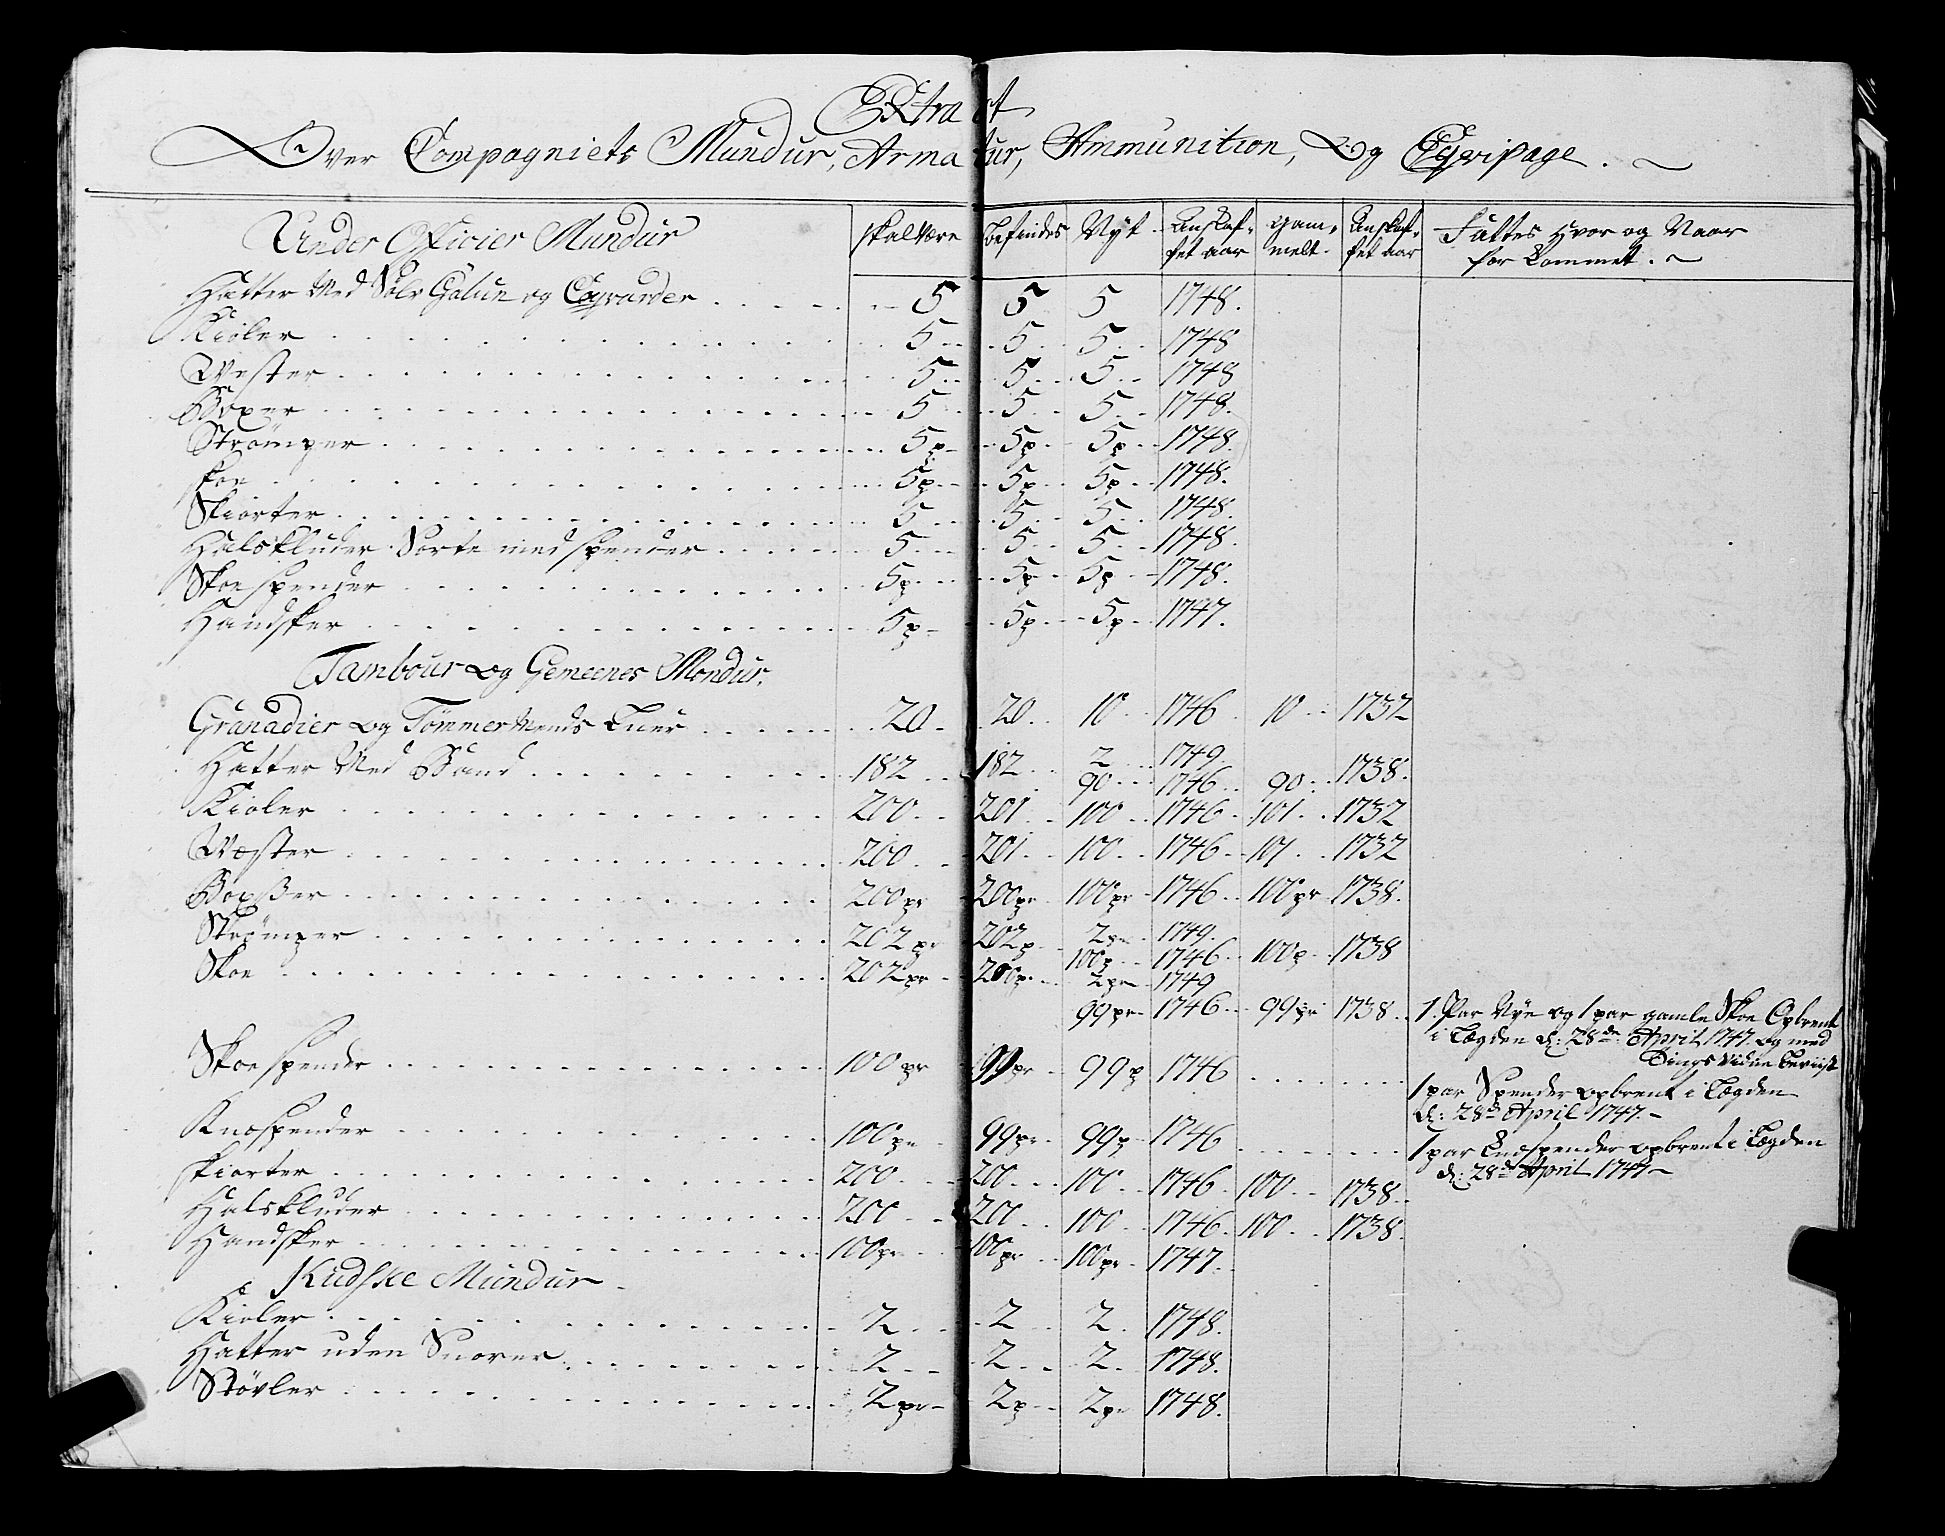 Extract
Over Compagniets Mundur, Armatur, Ammunition, Og Eqvipage.
Under Officier Mundur | skal være | befindes | Nyt | Anskaf- | gam- | Anskaf- | Fattes Hvor og Naar
fet aar | melt. | fet aar | for Kommet.
Hatter Med Sølv Galun og Coqvarder | 5 | 5 | 5 | 1748.
Kioler | 5 | 5 | 5 | 1748
Wester | 5 | 5 | 5 | 1748
Boxer | 5 | 5 | 5 | 1748.
Strømper | 5p | 5p | 5p | 1748.
skoe | 5p | 5p | 5p | 1748.
Skiorter | 5 | 5 | 5 | 1748.
Halskluder Sorte med spender | 5 | 5 | 5 | 1748.
Skoespender | 5p | 5p | 5p | 1748.
Handsker | 5p | 5p | 5p | 1747.
Tambour og Gemeenes Mondur.
Granadier og Tømmermends Luer | 20 | 20 | 10 | 1746 | 10 | 1732
Hatter Med Band | 182 | 182 | 2 | 1749.
90 | 1746 | 90 | 1738.
Kioler | 200 | 201 | 100 | 1746 | 101 | 1732
Wæster | 200 | 201 | 100 | 1746 | 101 | 1732
Boxßer | 200pr | 200pr | 100pr | 1746 | 100pr | 1738.
Strømper | 202pr | 202p | 2pr | 1749.
100p | 1746 | 100p | 1738
Skoe | 202pr | 200p | 2pr | 1749
99pr | 1746 | 99pr | 1738 | 1. Par Nye og 1 par gamle Skoe Opbrent
i Lægden d: 28de April 1747. og med
Tings Vidne beviist
Skoespender | 100pr | 99pr | 99p | 1746
1 par Spender opbrent i Lægden
d: 28de April 1747
Knæspender | 100pr | 99pr | 99p | 1746
1 par Knæspender opbrent i Lægden
d: 28de April 1747
skiorter | 200 | 200 | 100 | 1746 | 100 | 1738
Halskluder | 200 | 200 | 100 | 1746 | 100 | 1738.
Handsker | 100pr | 100pr | 100pr | 1747.
Kudske Mundur
Kioler | 2 | 2 | 2 | 1748.
Hatter uden Snorer | 2 | 2 | 2 | 1748.
Støvler | 2pr | 2p | 2p | 1748.